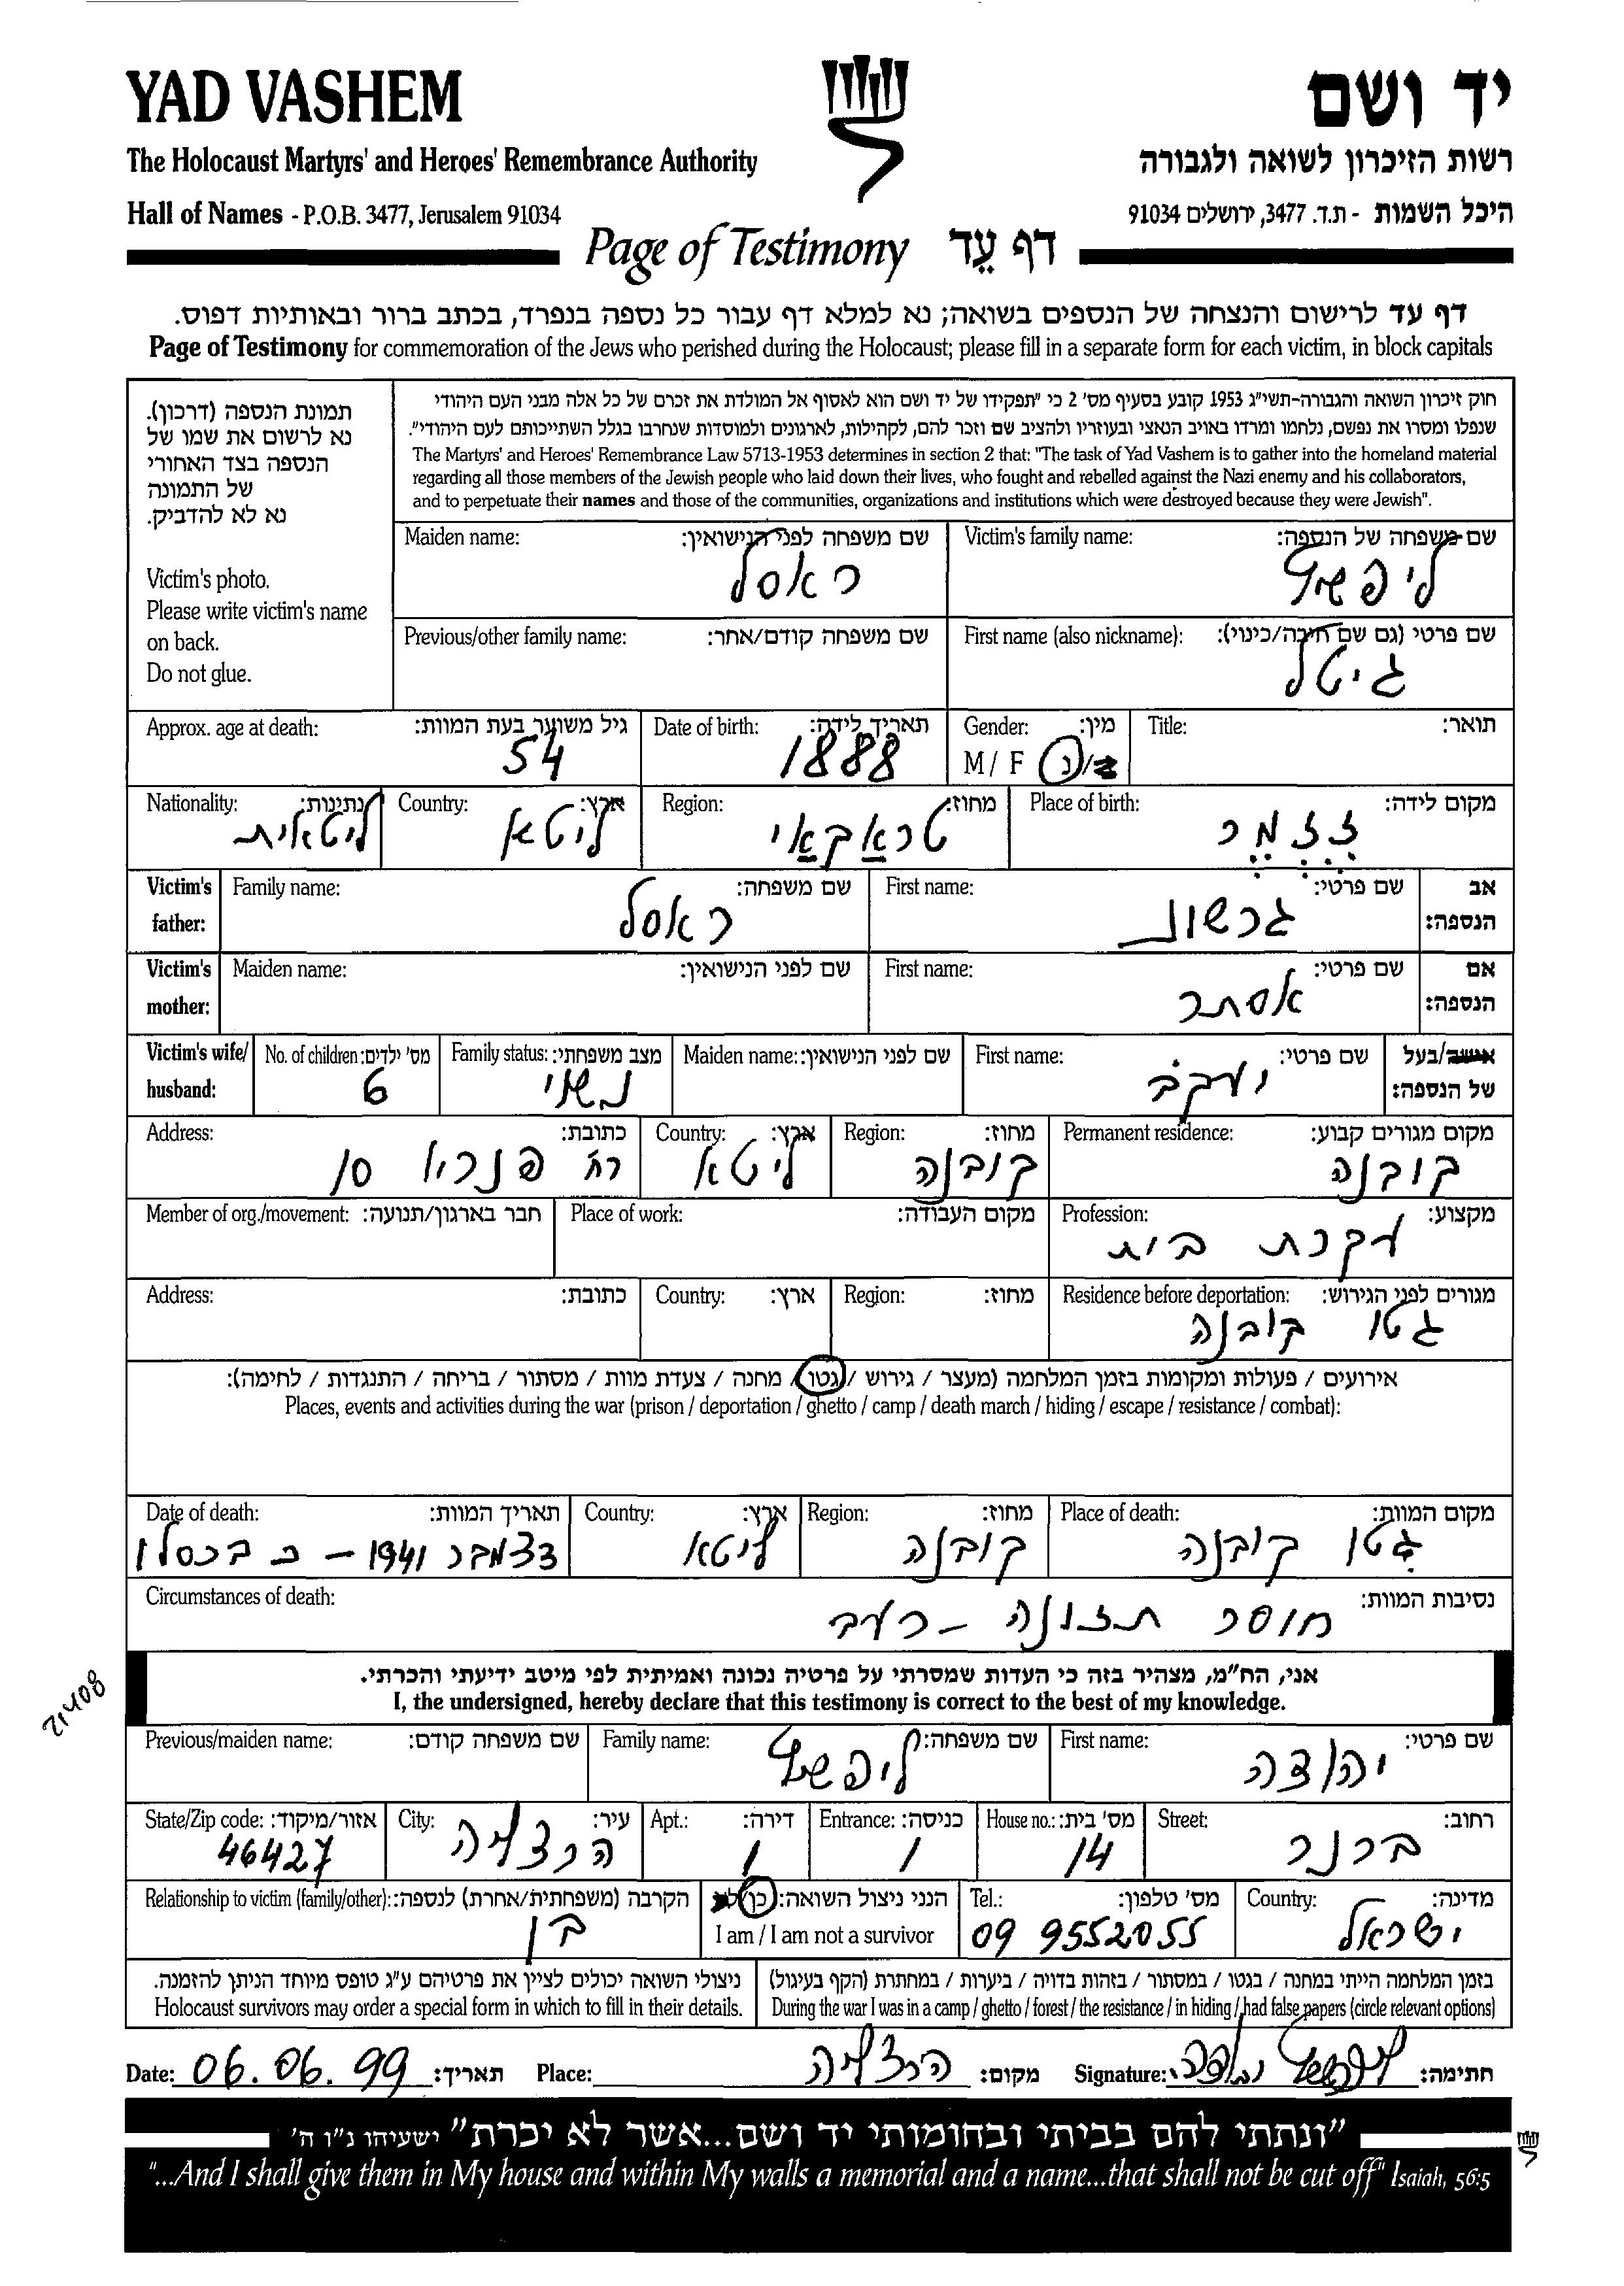 YAD VASHEM
יד ושם
The Holocaust Martyrs' and Heroes' Remembrance Authority
רשות הזיכרון לשואה ולגבורה
Hall of Names - P.O.B. 3477, Jerusalem 91034
היכל השמות - ת.ד. 3477, ירושלים 91034
Page of Testimony דף עֵד
דף עד לרישום והנצחה של הנספים בשואה; נא למלא דף עבור כל נספה בנפרד, בכתב ברור ובאותיות דפוס.
Page of Testimony for commemoration of the Jews who perished during the Holocaust; please fill in a separate form for each victim, in block capitals
תמונת הנספה (דרכון).
נא לרשום את שמו של
הנספה בצד האחורי
של התמונה
נא לא להדביק.
Victim's photo.
Please write victim's name
on back.
Do not glue.
חוק זיכרון השואה והגבורה-תשי"ג 1953 קובע בסעיף מס' 2 כי "תפקידו של יד ושם הוא לאסוף אל המולדת את זכרם של כל אלה מבני העם היהודי
שנפלו ומסרו את נפשם, נלחמו ומרדו באויב הנאצי ובעוזריו ולהציב שם וזכר להם, לקהילות, לארגונים ולמוסדות שנחרבו בגלל השתייכותם לעם היהודי".
The Martyrs' and Heroes' Remembrance Law 5713-1953 determines in section 2 that: "The task of Yad Vashem is to gather into the homeland material
regarding all those members of the Jewish people who laid down their lives, who fought and rebelled against the Nazi enemy and his collaborators,
and to perpetuate their names and those of the communities, organizations and institutions which were destroyed because they were Jewish".
Victim's family name: שם משפחה של הנספה:
ליפשיץ
Maiden name: שם משפחה לפני הנישואין:
ראסל
First name (also nickname): שם פרטי (גם שם חיבה/כינוי):
גיטל
Previous/other family name: שם משפחה קודם/אחר:
Title: תואר:
Gender: מין:
M / F ז/נ
Date of birth: תאריך לידה:
1888
Approx. age at death: גיל משוער בעת המוות:
54
Place of birth: מקום לידה:
Region: מחוז:
טראקאי
Country: ארץ:
ליטא
Nationality: נתינות:
ליטאית
Victim's father: אב הנספה:
First name: שם פרטי:
גרשון
Family name: שם משפחה:
ראסל
Victim's mother: אם הנספה:
First name: שם פרטי:
אסתר
Maiden name: שם לפני הנישואין:
Victim's wife/ husband: אישה/בעל של הנספה:
First name: שם פרטי:
יעקב
Maiden name: שם לפני הנישואין:
Family status: מצב משפחתי:
נשוי
No. of children: מס' ילדים:
6
Permanent residence: מקום מגורים קבוע:
קובנה
Region: מחוז:
קובנה
Country: ארץ:
ליטא
Address: כתובת:
רח 10
Profession: מקצוע:
עקרת בית
Place of work: מקום העבודה:
Member of org./movement: חבר בארגון/תנועה:
Residence before deportation: מגורים לפני הגירוש:
גטו קובנה
Region: מחוז:
Country: ארץ:
Address: כתובת:
אירועים / פעולות ומקומות בזמן המלחמה (מעצר / גירוש / גטו / מחנה / צעדת מוות / מסתור / בריחה / התנגדות / לחימה):
Places, events and activities during the war (prison / deportation / ghetto / camp / death march / hiding / escape / resistance / combat):
Place of death: מקום המוות:
גטו קובנה
Region: מחוז:
קובנה
Country: ארץ:
ליטא
Date of death: תאריך המוות:
דצמבר 1941 – כ בכסלו
Circumstances of death: נסיבות המוות:
חוסר תזונה – רעב
אני, הח"מ, מצהיר בזה כי העדות שמסרתי על פרטיה נכונה ואמיתית לפי מיטב ידיעתי והכרתי.
I, the undersigned, hereby declare that this testimony is correct to the best of my knowledge.
21408
First name: שם פרטי:
יהודה
Family name: שם משפחה:
ליפשיץ
Previous/maiden name: שם משפחה קודם:
Street: רחוב:
ברנר
House no.: מס' בית:
14
Entrance: כניסה:
1
Apt.: דירה:
1
City: עיר:
הרצליה
State/Zip code: אזור/מיקוד:
46427
Country: מדינה:
ישראל
Tel.: מס' טלפון:
09 9552055
הנני ניצול השואה: כן/לא
I am / I am not a survivor
Relationship to victim (family/other): הקרבה (משפחתית/אחרת) לנספה:
בן
בזמן המלחמה הייתי במחנה / בגטו / במסתור / בזהות בדויה / ביערות / במחתרת (הקף בעיגול)
During the war I was in a camp / ghetto / forest / the resistance / in hiding / had false papers (circle relevant options)
ניצולי השואה יכולים לציין את פרטיהם ע"ג טופס מיוחד הניתן להזמנה.
Holocaust survivors may order a special form in which to fill in their details.
Date: 06.06.99 תאריך: Place: הרצליה מקום: Signature: חתימה:
"ונתתי להם בביתי ובחומותי יד ושם...אשר לא יכרת" ישעיהו נ"ו ה'
"...And I shall give them in My house and within My walls a memorial and a name...that shall not be cut off" Isaiah, 56:5